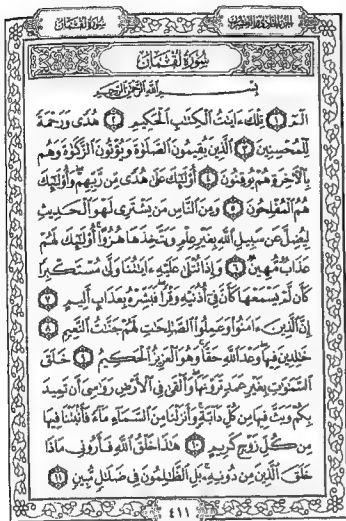 الجزء الحادي والعشرون سورة لقمان
سورة لقمان
بسم الله الرحمن الرحيم
الٓمٓ ١ تِلْكَ ءَايَٰتُ ٱلْكِتَٰبِ ٱلْحَكِيمِ ٢ هُدًى وَرَحْمَةً
لِّلْمُحْسِنِينَ ٣ ٱلَّذِينَ يُقِيمُونَ ٱلصَّلَوٰةَ وَيُؤْتُونَ ٱلزَّكَوٰةَ وَهُم
بِٱلْأَخِرَةِ هُمْ يُوقِنُونَ ٤ أُوْلَٰٓئِكَ عَلَىٰ هُدًى مِّن رَّبِّهِمْ وَأُوْلَٰٓئِكَ
هُمُ ٱلْمُفْلِحُونَ ٥ وَمِنَ ٱلنَّاسِ مَن يَشْتَرِى لَهْوَ ٱلْحَدِيثِ
لِيُضِلَّ عَن سَبِيلِ ٱللَّهِ بِغَيْرِ عِلْمٍ وَيَتَّخِذَهَا هُزُوًا أُوْلَٰٓئِكَ لَهُمْ
عَذَابٌ مُّهِينٌ ٦ وَإِذَا تُتْلَىٰ عَلَيْهِ ءَايَٰتُنَا وَلَّىٰ مُسْتَكْبِرًا
كَأَن لَّمْ يَسْمَعْهَا كَأَنَّ فِىٓ أُذُنَيْهِ وَقْرًا فَبَشِّرْهُ بِعَذَابٍ أَلِيمٍ ٧
إِنَّ ٱلَّذِينَ ءَامَنُوا۟ وَعَمِلُوا۟ ٱلصَّٰلِحَٰتِ لَهُمْ جَنَّٰتُ ٱلنَّعِيمِ ٨
خَٰلِدِينَ فِيهَا وَعْدَ ٱللَّهِ حَقًّا وَهُوَ ٱلْعَزِيزُ ٱلْحَكِيمُ ٩ خَلَقَ
ٱلسَّمَٰوَٰتِ بِغَيْرِ عَمَدٍ تَرَوْنَهَا وَأَلْقَىٰ فِى ٱلْأَرْضِ رَوَٰسِىَ أَن تَمِيدَ
بِكُمْ وَبَثَّ فِيهَا مِن كُلِّ دَآبَّةٍ وَأَنزَلْنَا مِنَ ٱلسَّمَآءِ مَآءً فَأَنۢبَتْنَا فِيهَا
مِن كُلِّ زَوْجٍ كَرِيمٍ ١٠ هَٰذَا خَلْقُ ٱللَّهِ فَأَرُونِى مَاذَا
خَلَقَ ٱلَّذِينَ مِن دُونِهِۦ بَلِ ٱلظَّٰلِمُونَ فِى ضَلَٰلٍ مُّبِينٍ ١١
٤١١